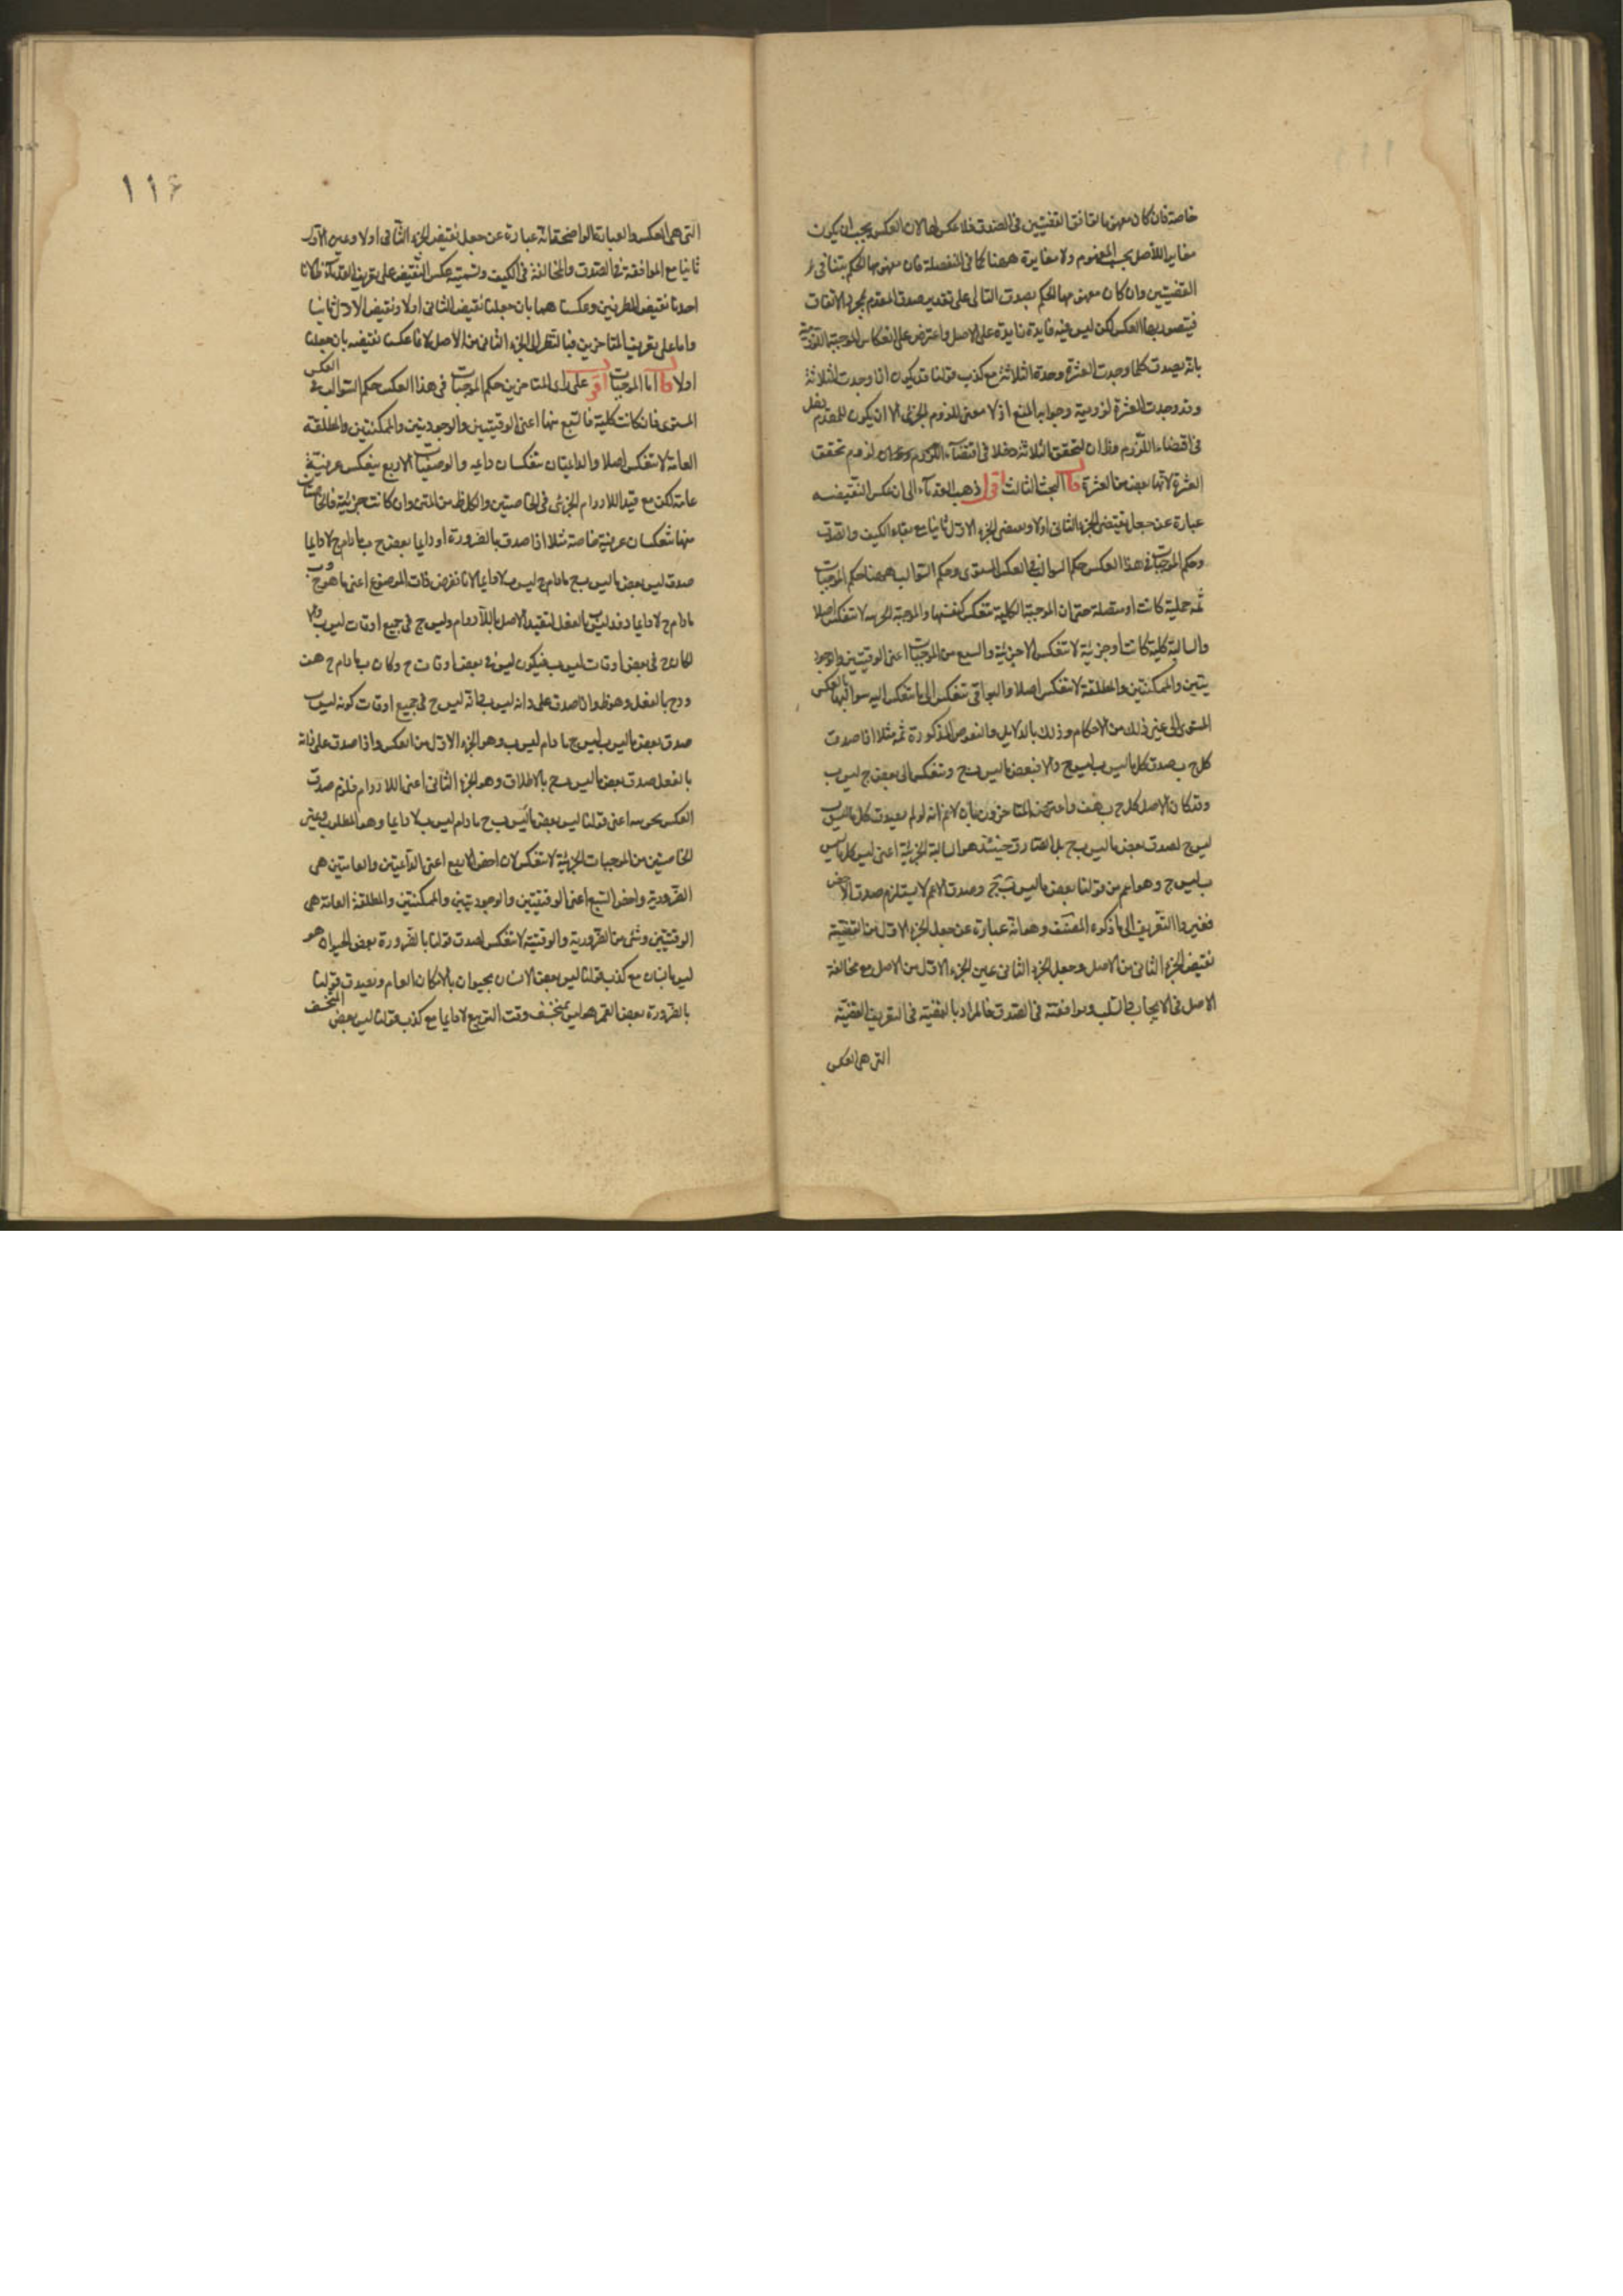 خاصة فان كان مفهومها توافق القضيتين في الصدق فلا عكس لها لان العكس يجب ان يكون
مغايرا للاصل بحسب المفهوم ولا مغايرة ههنا كما في المنفصلة فان مفهومها الحكم بتنافي
القضيتين وان كان مفهومها الحكم بصدق التالى على تقدير صدق المقدم لمجرد الاتفاق
فيتصور بها العكس لكن ليس فيه فايدة زايدة على الاصل واعترض على انعكاس الموجبة اللزومية
بانه يصدق كلما وجدت العشرة وجدت الثلاثة مع كذب قولنا قد يكون اذا وجدت الثلاثة
وقد وجدت العشرة لزومية وجوابه المنع اذ لا معنى للزوم الجزئى الا ان يكون للمقدم دخل
في اقتضاء اللزوم وظ ان لتحقق الثلاثة دخلا في اقتضاء لزوم تحقق
العشرة لانها بعض من العشرة قال البحث الثالث اقول ذهب القدماء الى ان عكس النقيض
عبارة عن جعل نقيض الجزء الثانى اولا ونقيض الجزء الاول ثانيا مع بقاء الكيف والصدق
وحكم الموجبات في هذا العكس حكم السوالب في العكس المستوى وحكم السوالب ههنا حكم الموجبات
ثمة حملية كانت او متصلة حتى ان الموجبة الكلية تنعكس كنفسها والموجبة الجزئية لا تنعكس اصلا
والسالبة كلية كانت او جزئية لا تنعكس الا جزئية والسبع من الموجبات اعنى الوقتيتين والوجود
يتين والممكنتين والمطلقة لا تنعكس اصلا والبواقى تنعكس الى ما تنعكس اليه سوالبها بالعكس
المستوى الى غير ذلك من الاحكام وذلك بالدلايل والنقوض المذكورة ثمة مثلا اذا صدق
كل ج ب صدق كل ما ليس ب ليس ج والا فبعض ما ليس ب ج وتنعكس الى بعض ج ليس ب
وقد كان الاصل كل ج ب هف واعترض المتاخرون بانا لا نم انه لو لم يصدق كل ما ليس ب
ليس ج لصدق بعض ما ليس ب ج بل الصادق حينئذ هو السالبة الجزئية اعنى ليس كل ما ليس
ب ليس ج وهو اعم من قولنا بعض ما ليس ب ج وصدق الاعم لا يستلزم صدق الاخص
فغيروا التعريف الى ما ذكره المصنف وهو انه عبارة عن جعل الجزء الاول من القضية
نقيض الجزء الثانى من الاصل وجعل الجزء الثانى عين الجزء الاول من الاصل مع مخالفة
الاصل في الايجاب والسلب وموافقته في الصدق فالمراد بالقضية في التعريف القضية
التى هى العكس
١١٤
التى هى العكس والعبارة الواضحة انه عبارة عن جعل نقيض الجزء الثانى اولا وعين الاول
ثانيا مع الموافقة في الصدق والمخالفة في الكيف وتسميته عكس النقيض على تعريف القدماء ظ لانا
اخذنا نقيض الطرفين وعكسناهما بان جعلنا نقيض الثانى اولا ونقيض الاول ثانيا
واما على تعريف المتاخرين فبالنظر الى الجزء الثانى من الاصل لانا عكسنا نقيضه بان جعلناه
اولا قال اما الموجبات اقول على راى المتاخرين حكم الموجبات في هذا العكس حكم السوالب في العكس
المستوى فان كانت كلية فالسبع منها اعنى الوقتيتين والوجوديتين والممكنتين والمطلقة
العامة لا تنعكس اصلا والدايمتان تنعكسان دايمة والوصفيات الاربع ينعكس عرفية
عامة لكن مع قيد اللادوام الجزئى في الخاصتين والكل ظ من المتن وان كانت جزئية فالخاصتان
منها تنعكسان عرفية خاصة مثلا اذا صدق بالضرورة او دايما بعض ج ب ما دام ج لا دايما
صدق ليس بعض ما ليس ب ج ما دام ليس ب لا دايما لانا نفرض ذات الموضوع اعنى ما هو ج و ب
ما دام ج لا دايما د فد ليس ب بالفعل لتقييد الاصل باللادوام وليس ج في جميع اوقات ليس ب والا
لكان ج في بعض اوقات ليس ب فيكون ليس ب في بعض اوقات ج وكان ب ما دام ج هف
ود ج بالفعل وهو ظ واذا صدق على د انه ليس ب وانه ليس ج في جميع اوقات كونه ليس ب
صدق بعض ما ليس ب ليس ج ما دام ليس ب وهو الجزء الاول من العكس واذا صدق على د انه ج
بالفعل صدق بعض ما ليس ب ج بالاطلاق وهو الجزء الثانى اعنى اللادوام فلزم صدق
العكس بجزئيه اعنى قولنا ليس بعض ما ليس ب ج ما دام ليس ب لا دايما وهو المطلوب وغير
الخاصتين من الموجبات الجزئية لا تنعكس لان اخص الاربع اعنى الدايمتين والعامتين هى
الضرورية واخص السبع اعنى الوقتيتين والوجوديتين والممكنتين والمطلقة العامة هى
الوقتيتين وشئ من الضرورية والوقتية لا تنعكس لصدق قولنا بالضرورة بعض الحيوان هو
ليس بانسان مع كذب قولنا ليس بعض الانسان بحيوان بالامكان العام ويصدق قولنا
بالضرورة بعض القمر هو ليس بمنخسف وقت التربيع لا دايما مع كذب قولنا ليس بعض المنخسف